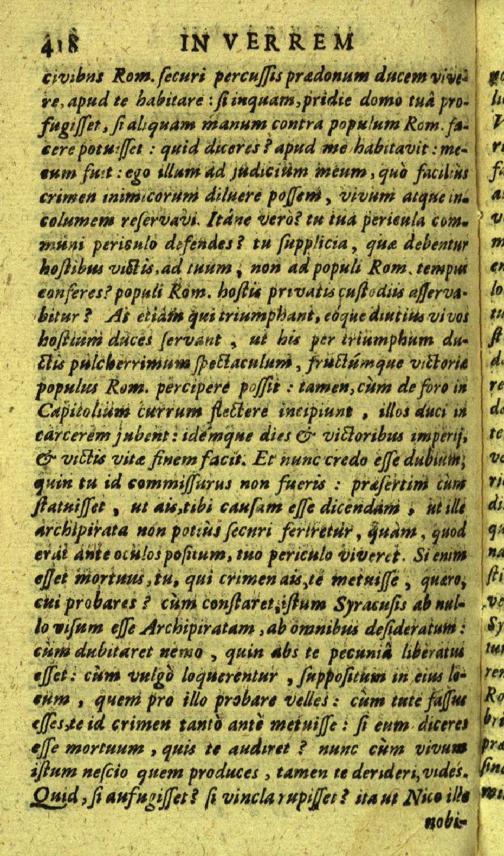 418 IN VERREM
civibus Rom. securi percussis prædonum ducem vive-
re, apud te habitare : si inquam, pridie domo tuâ pro-
fugisset, si aliquam manum contra populum Rom. fa-
cere potuisset : quid diceres ? apud me habitavit : me-
cum fuit : ego illum ad judicium meum, quò faciliùs
crimen inimicorum diluere possem, vivum atque in-
columem reservavi. Itáne verò? tu tua pericula com-
muni periculo defendes ? tu supplicia, quæ debentur
hostibus victis, ad tuum, non ad populi Rom. tempus
conferes? populi Rom. hostis privatis custodiis asserva-
bitur ? At etiam qui triumphant, eóque diutius vivos
hostium duces servant, ut his per triumphum du-
ctis pulcherrimum spectaculum, fructúmque victoriæ
populus Rom. percipere possit : tamen, cùm de foro in
Capitolium currum flectere incipiunt, illos duci in
carcerem jubent : idémque dies & victoribus imperij,
& victis vitæ finem facit. Et nunc credo esse dubium,
quin tu id commissurus non fueris : præsertim cùm
statuisset, ut ais, tibi causam esse dicendam, ut ille
archipirata non potiùs securi feriretur, quàm, quod
erat ante oculos positum, tuo periculo viveret. Si enim
esset mortuus, tu, qui crimen ais, te metuisse, quæro,
cui probares ? cùm constaret, istum Syracusis ab nul-
lo visum esse Archipiratam, ab omnibus desideratum :
cùm dubitaret nemo, quin abs te pecuniâ liberatus
esset : cùm vulgò loquerentur, suppositum in eius lo-
cum, quem pro illo probare velles : cùm tute fassus
esses, te id crimen tantò antè metuisse : si eum diceres
esse mortuum, quis te audiret ? nunc cùm vivum
istum nescio quem produces, tamen te derideri, vides.
Quid, si aufugisset ? si vincla rupisset ? ita ut Nico ille
nobi-